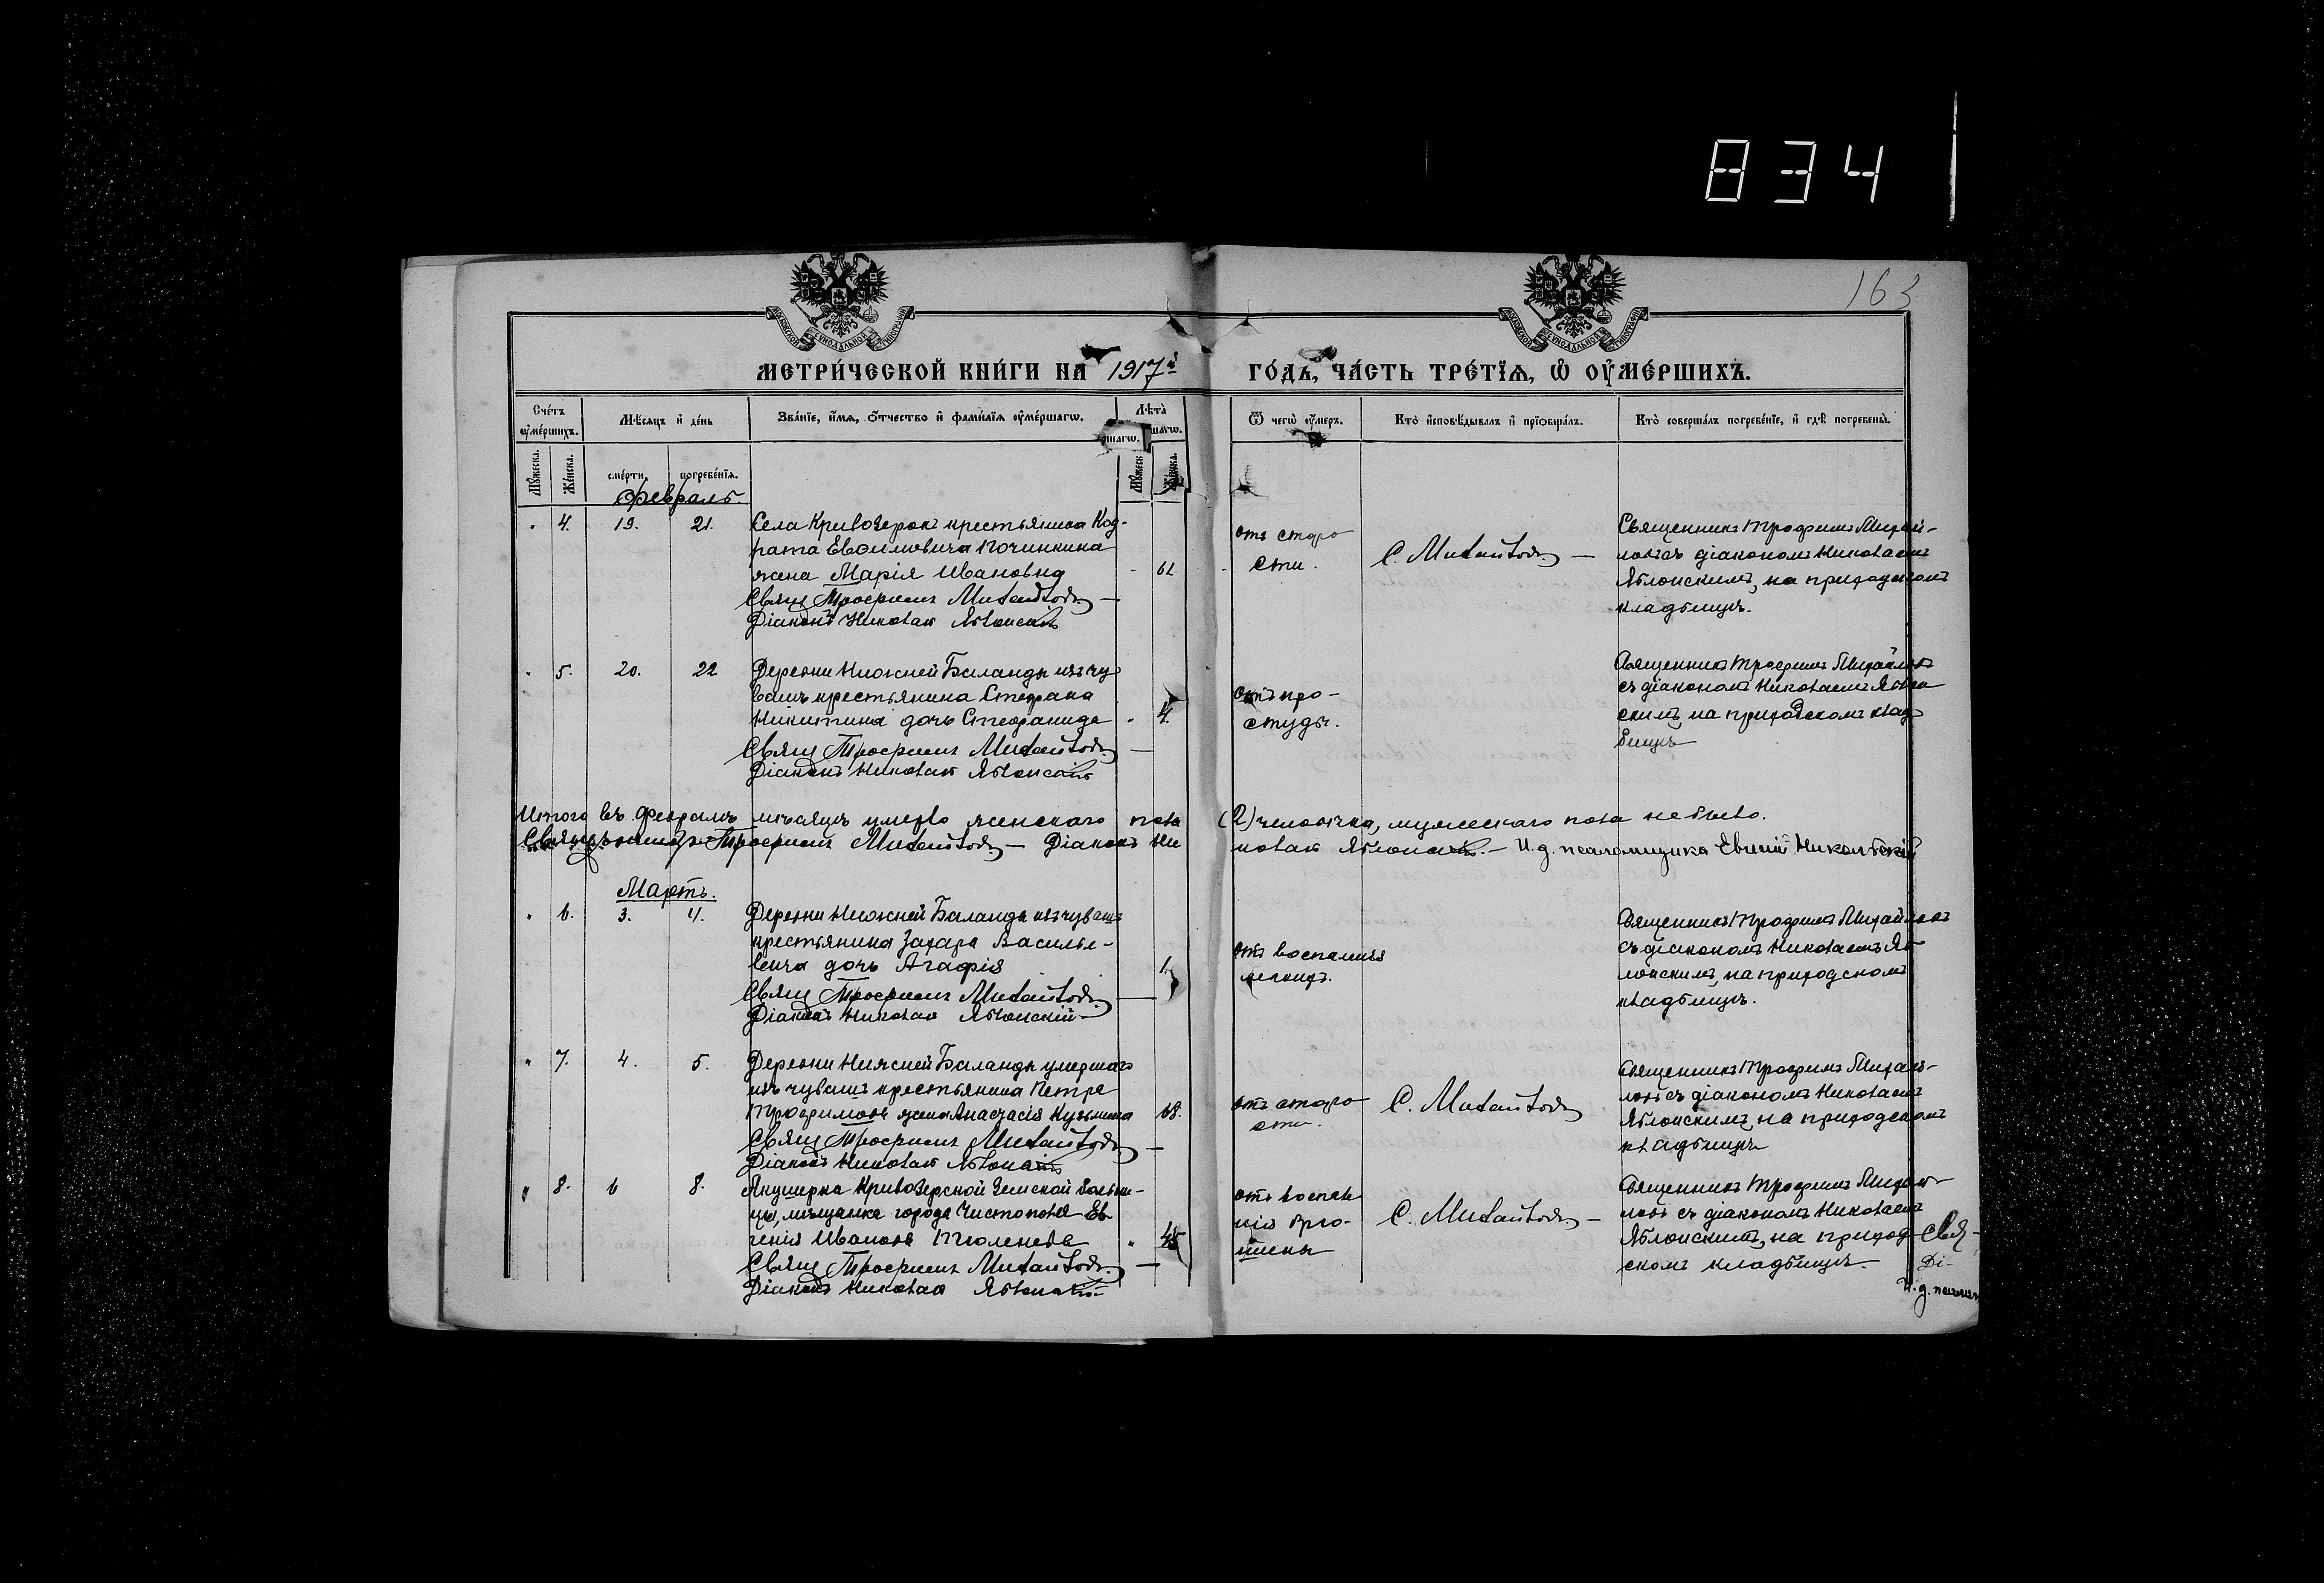 834
163
МЕТРИ́ЧЕСКОЙ КНИ́ГИ НА 1917й ГО́ДЪ, ЧА́СТЬ ТРЕ́ТІѦ, Ѡ ОУМЕ́РШИХЪ.
Сче́тъ оуме́ршихъ.
Мѣсѧцъ и де́нь
Зва́нїе, и́мѧ, о́тчество и фами́лїѧ оуме́ршагѡ.
Лѣта̀
Ѿ чегѡ̀ оу́меръ.
Кто̀ исповѣ́дывалъ и прїобща́лъ.
Кто̀ соверша́лъ погребе́нїе, и гдѣ̀ погребены̀.
Мꙋ́жеска.
Же́нска.
сме́рти.
погребе́нїѧ.
Мꙋ́жеск
Же́нска.
Февраль.
4. 19. 21.
Села Кривозерок крестьянина Код-
рата Евфимовича Починкина
жена Марія Ивановна
61
Свящ Трофимъ Михайловъ
Діаконъ Николай Яблонскій
отъ старо
сти.
С. Михайловъ
Священникъ Трофимъ Михай-
ловъ съ діакономъ Николаемъ
Яблонскимъ, на приходскомъ
кладбищѣ.
5. 20. 22
Деревни Нижней Баланды изъ чу
вашъ крестьянина Стефана
Никитина дочь Стефанида
4.
Свящ Трофимъ Михайловъ
Діаконъ Николай Яблонскій
отъ про-
студы.
Священникъ Трофимъ Михайловъ
съ діакономъ Николаемъ Яблон
скимъ, на приходскомъ клад
бищѣ
Итого въ Февралѣ мѣсяцѣ умерло женскаго пола (2) человѣка, мужескаго пола не было.
Священникъ Трофимъ Михайловъ — Діаконъ Ни
колай Яблонскій. — И. д. псаломщика Евгеній Никольскій
Мартъ.
6. 3. 4.
Деревни Нижней Баланды изъ чувашъ
крестьянина Захара Василье-
вича дочь Агафія
1.
Свящ Трофимъ Михайловъ
Діаконъ Николай Яблонскій
отъ воспаленія
легкихъ.
Священникъ Трофимъ Михайловъ
съ діакономъ Николаемъ Яб
лонскимъ, на приходскомъ
кладбищѣ.
7. 4. 5.
Деревни Нижней Баланды умершаго
изъ чувашъ крестьянина Петра
Трофимова жена Анастасія Кузьмина
68.
Свящ Трофимъ Михайловъ
Діаконъ Николай Яблонскій
отъ старо
сти.
С. Михайловъ
Священникъ Трофимъ Михай-
ловъ съ діакономъ Николаемъ
Яблонскимъ, на приходскомъ
кладбищѣ
8. 6 8.
Акушерка Кривозерской Земской больни-
цы, мѣщанка города Чистополя Ев
генія Иванова Тюленева
45
Свящ Трофимъ Михайловъ
Діаконъ Николай Яблонскій
отъ воспале
нія брю-
шины
С. Михайловъ
Священникъ Трофимъ Михай
ловъ съ діакономъ Николаемъ
Яблонскимъ, на приход
скомъ кладбищѣ.
Свя-
Ді-
И. д. псалом